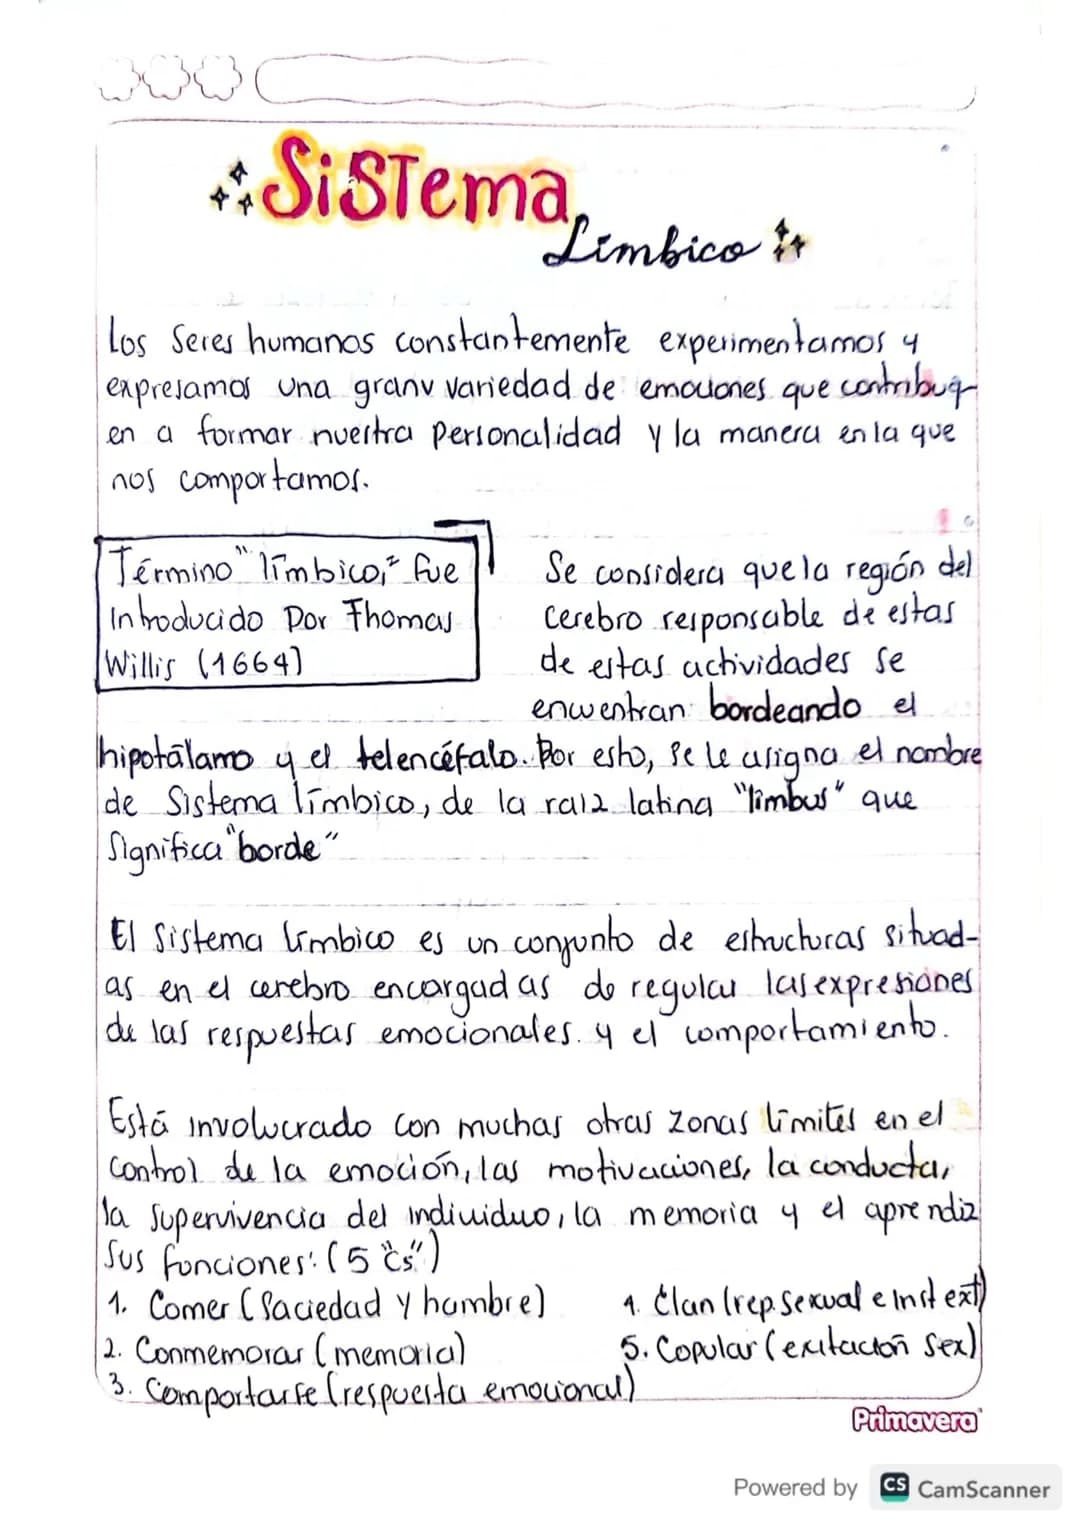 Sistema
Límbico
Los Seres humanos constantemente experimentamos y
expresamos una granv variedad de emociones que contribuy-
en a formar nuestra personalidad y la manera en la que
nos comportamos.
Término "límbico," fue
Introducido Por Thomas
Willis (1664)
Se considera que la región del
cerebro responsable de estas
de estas actividades se
encuentran bordeando el
hipotálamo y el telencéfalo. Por esto, se le asigna el nombre
de Sistema límbico, de la raiz latina "limbus" que
Significa "borde"
El Sistema límbico es un conjunto de estructuras situad-
as en el cerebro encargadas de regular las expresiones
de las respuestas emocionales. y el comportamiento.
Está involucrado con muchas otras zonas límites en el
control de la emoción, las motivaciones, la conducta,
la supervivencia del individuo, la memoria y el aprendiz
Sus funciones: (5 "Cs")
1. Comer (Saciedad y hambre)
2. Conmemorar (memoria)
3. Comportarse (respuesta emocional)
4. Clan (rep. sexual e Inst ext)
5. Copular (exitación sex)
Primavera
Powered by CS CamScanner